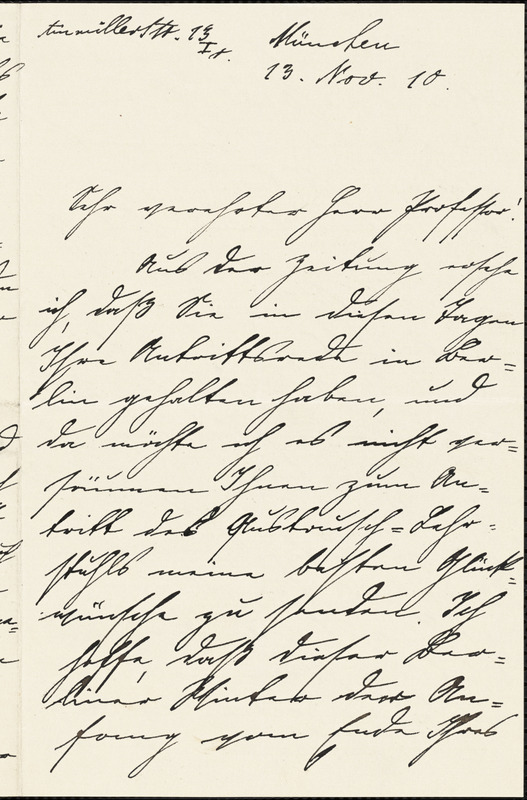 Ainmillerstr. 19
I r.
München
13. Nov. 10.
Sehr verehrter Herr Professor!
Aus der Zeitung ersehe
ich, daß Sie in diesen Tagen
Ihre Antrittsrede in Ber=
lin gehalten haben, und
da möchte ich es nicht ver=
säumen Ihnen zum An=
tritt des Austausch=Lehr=
stuhls meine besten Glück=
wünsche zu senden. Ich
hoffe, daß dieser Ber=
liner Winter der An=
fang vom Ende Ihres